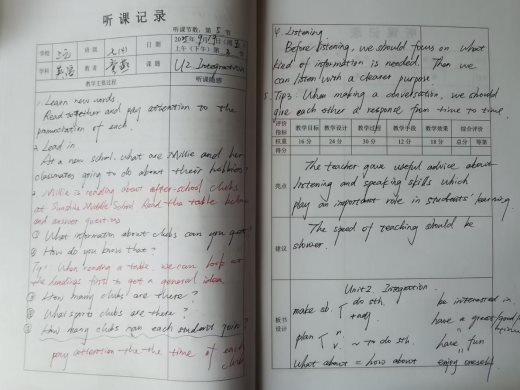 听课记录
听课节数:第 5 节
学校
班级
日期
2025年9月19日
上午(下午)第 节
学科 英语 教者 课题 U2 Integration
教学主要过程 听课随感
1. Learn new words.
Read together and pay attention to the
pronunciation of each.
2. Lead in
At a new school, what are Millie and her
classmates going to do about their hobbies?
3. Millie is reading about after-school clubs
at Sunshine Middle School. Read the table below
and answer questions
① What information about clubs can you get?
② How do you know that?
Tip: When reading a table, we can look at
the headings first to get a general idea.
① How many clubs are there?
② What sports clubs are there?
③ How many clubs can each student join?
pay attention the the time of each
club
4. Listening
Before listening, we should focus on what
kind of information is needed. Then we
can listen with a clearer purpose.
5. Tips: When making a conversation, we should
give each other a response from time to time.
评价指标 教学目标 教学设计 教学过程 教学手段 教学效果 综合评价
权重 16分 24分 30分 12分 18分 总分 等第
得分
亮点
The teacher gave useful advice about
listening and speaking skills which
play an important role in students' learning.
建议
The speed of teaching should be
slower.
板书设计
Unit 2 Integration
make ab. do sth.
+adj.
plan n.
v. ~ to do sth.
what about = how about
be interested in
have a great/good/
have fun
enjoy oneself